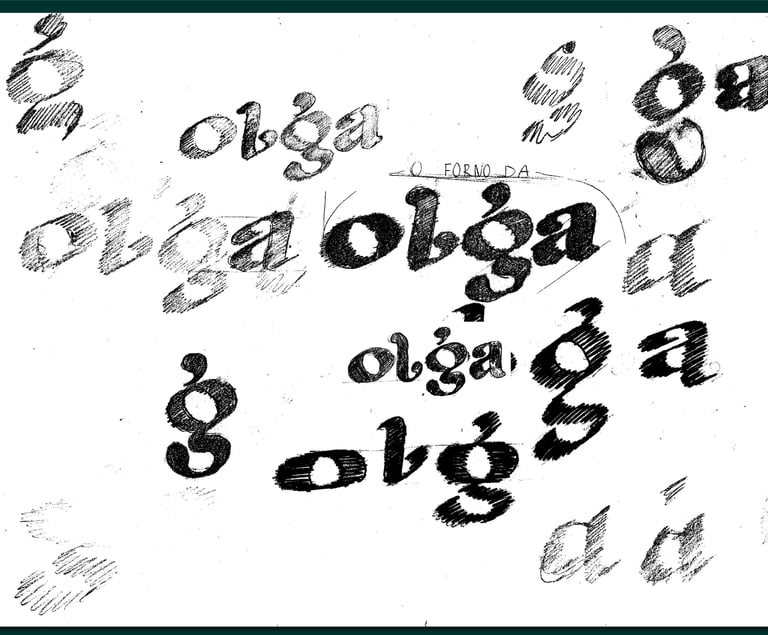 g
g
ga
olga
O FORNO DA
olga
olga
a
olga
g
a
g
olg
a
a